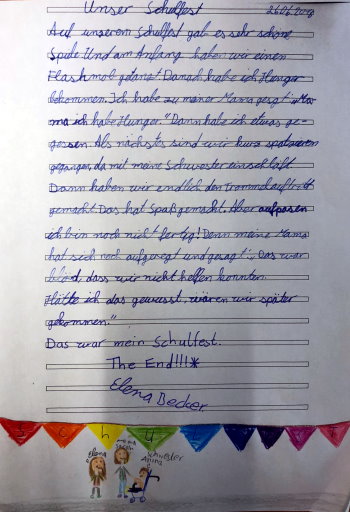 Unser Schulfest 26.06.2018
Auf unserem Schulfest gab es sehr schöne
Spiele. Und am Anfang haben wir einen
Flashmob getanzt. Danach habe ich Hunger
bekommen. Ich habe zu meiner Mama gesagt: „Ma-
ma ich habe Hunger." Dann habe ich etwas ge-
gessen. Als nächstes sind wir kurz spatzieren
gegangen, da mit meine Schwester einschläft.
Dann haben wir endlich den Trommelauftritt
gemacht. Das hat Spaß gemacht. Aber aufpasen
ich bin noch nicht fertig! Denn meine Mama
hat sich aufgeregt und gesagt: „Das war
blöd, dass wir nicht helfen konnten.
Hätte ich das gewusst, wären wir später
gekommen."
Das war mein Schulfest.
The End!!!*
Elena Becker
S c h u l f e s t
Elena Mama
Schwester